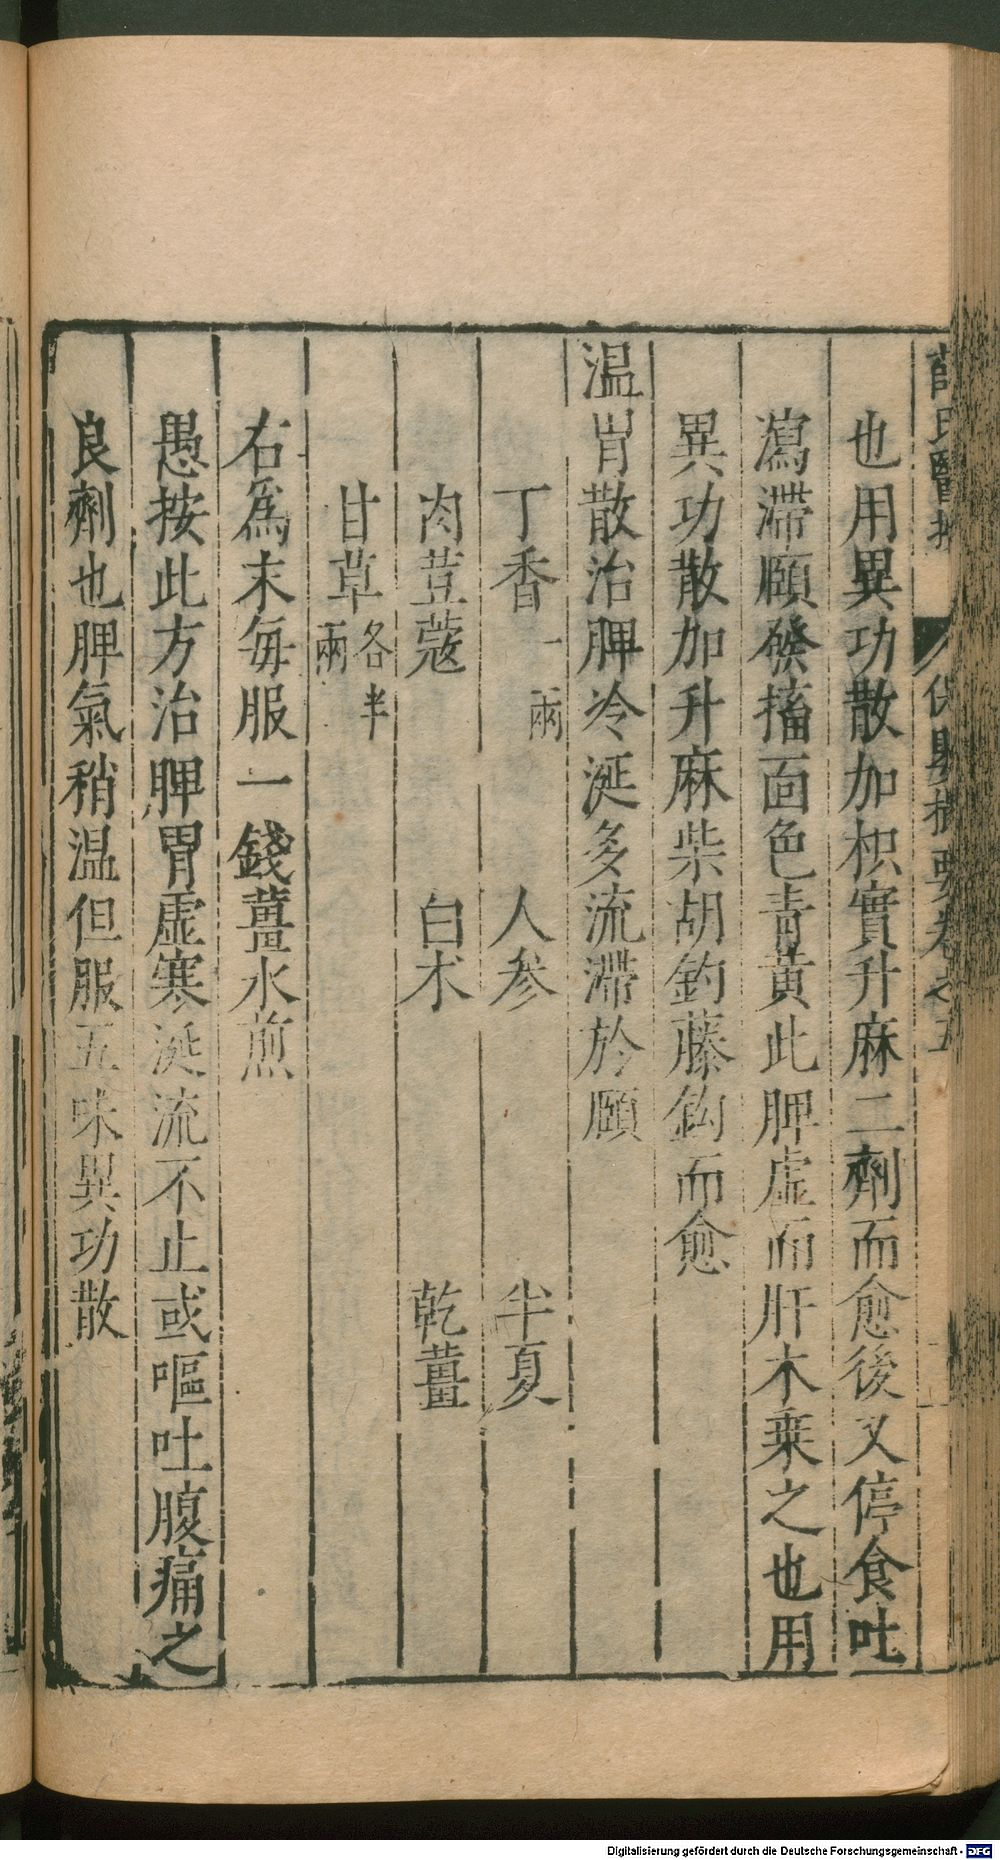 薛氏醫按 保嬰撮要卷之五
也用異功散加枳實升麻二劑而愈後又停食吐
瀉滯頤發搐面色青黃此脾虛而肝木乗之也用
異功散加升麻柴胡鈎藤鈎而愈
温胃散治脾冷涎多流滯於頤
丁香一兩 人參 半夏
肉荳蔻 白术 乾薑
甘草各半兩
右爲末每服一錢薑水煎
愚按此方治脾胃虛寒涎流不止或嘔吐腹痛之
良劑也脾氣稍温但服五味異功散
Digitalisierung gefördert durch die Deutsche Forschungsgemeinschaft - DFG